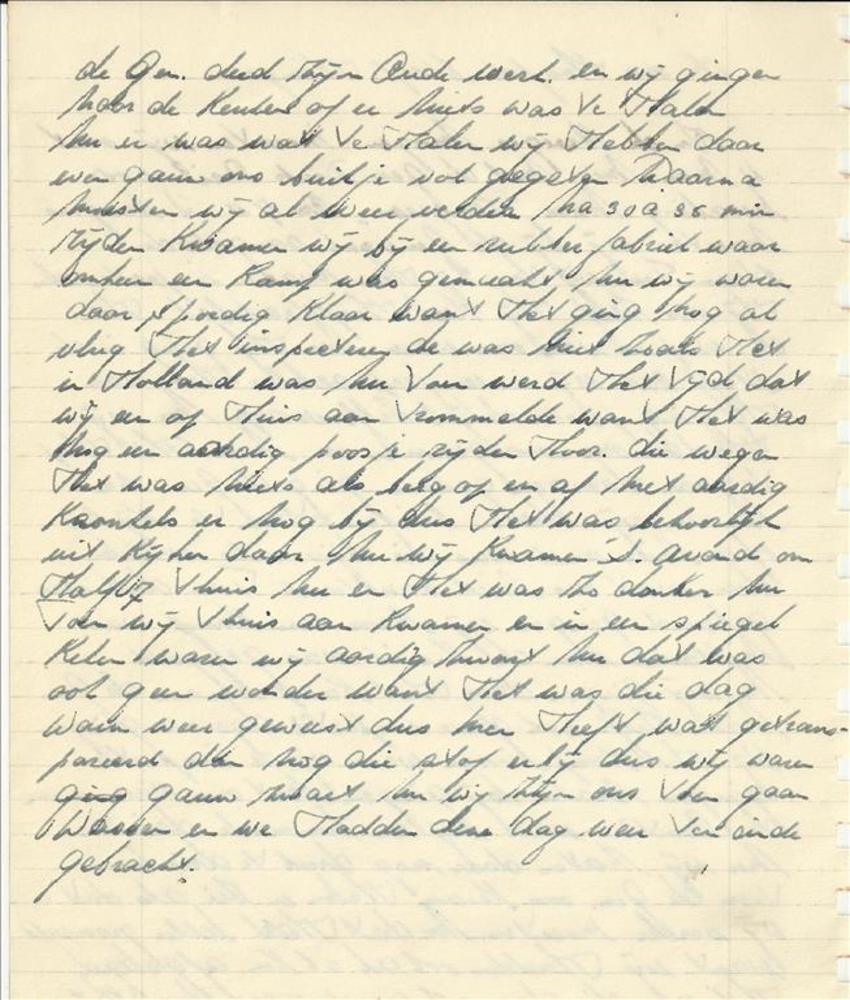 de Gen. deed zijn Oude werk. en wij gingen
naar de Keuken of er niets was te Halen
nu er was wat te Halen wij Hebben daar
even gauw ons buikje vol gegeten Daarna
moesten wij al weer verder na 30 a 35 min
rijden Kwamen wij bij een rubber fabriek waar
omheen een Kamp was gemaakt, nu wij waren
daar spoedig Klaar want Het ging nog al
vlug Het inspecteren de was niet zoals Het
in Holland was nu toen werd Het tijd dat
wij er op Huis aan trommelde want Het was
nog een aardig poosje rijden Hoor. die wegen
Het was niets als berg op en af met aardig
Kronkels er nog bij dus Het was behoorlijk
uit Kijken daar nu wij Kwamen S. avond om
Half 7 thuis nu en Het was zo donker nu
toen wij thuis aan Kwamen en in een spiegel
Keken waren wij aardig zwart nu dat was
ook geen wonder want Het was die dag
warm weer geweest dus men Heeft wat getrans-
pareerd dan nog die stof erbij dus wij waren
ging gauw zwart nu wij zijn ons toen gaan
Wassen en we Hadden deze dag weer ten einde
gebracht.